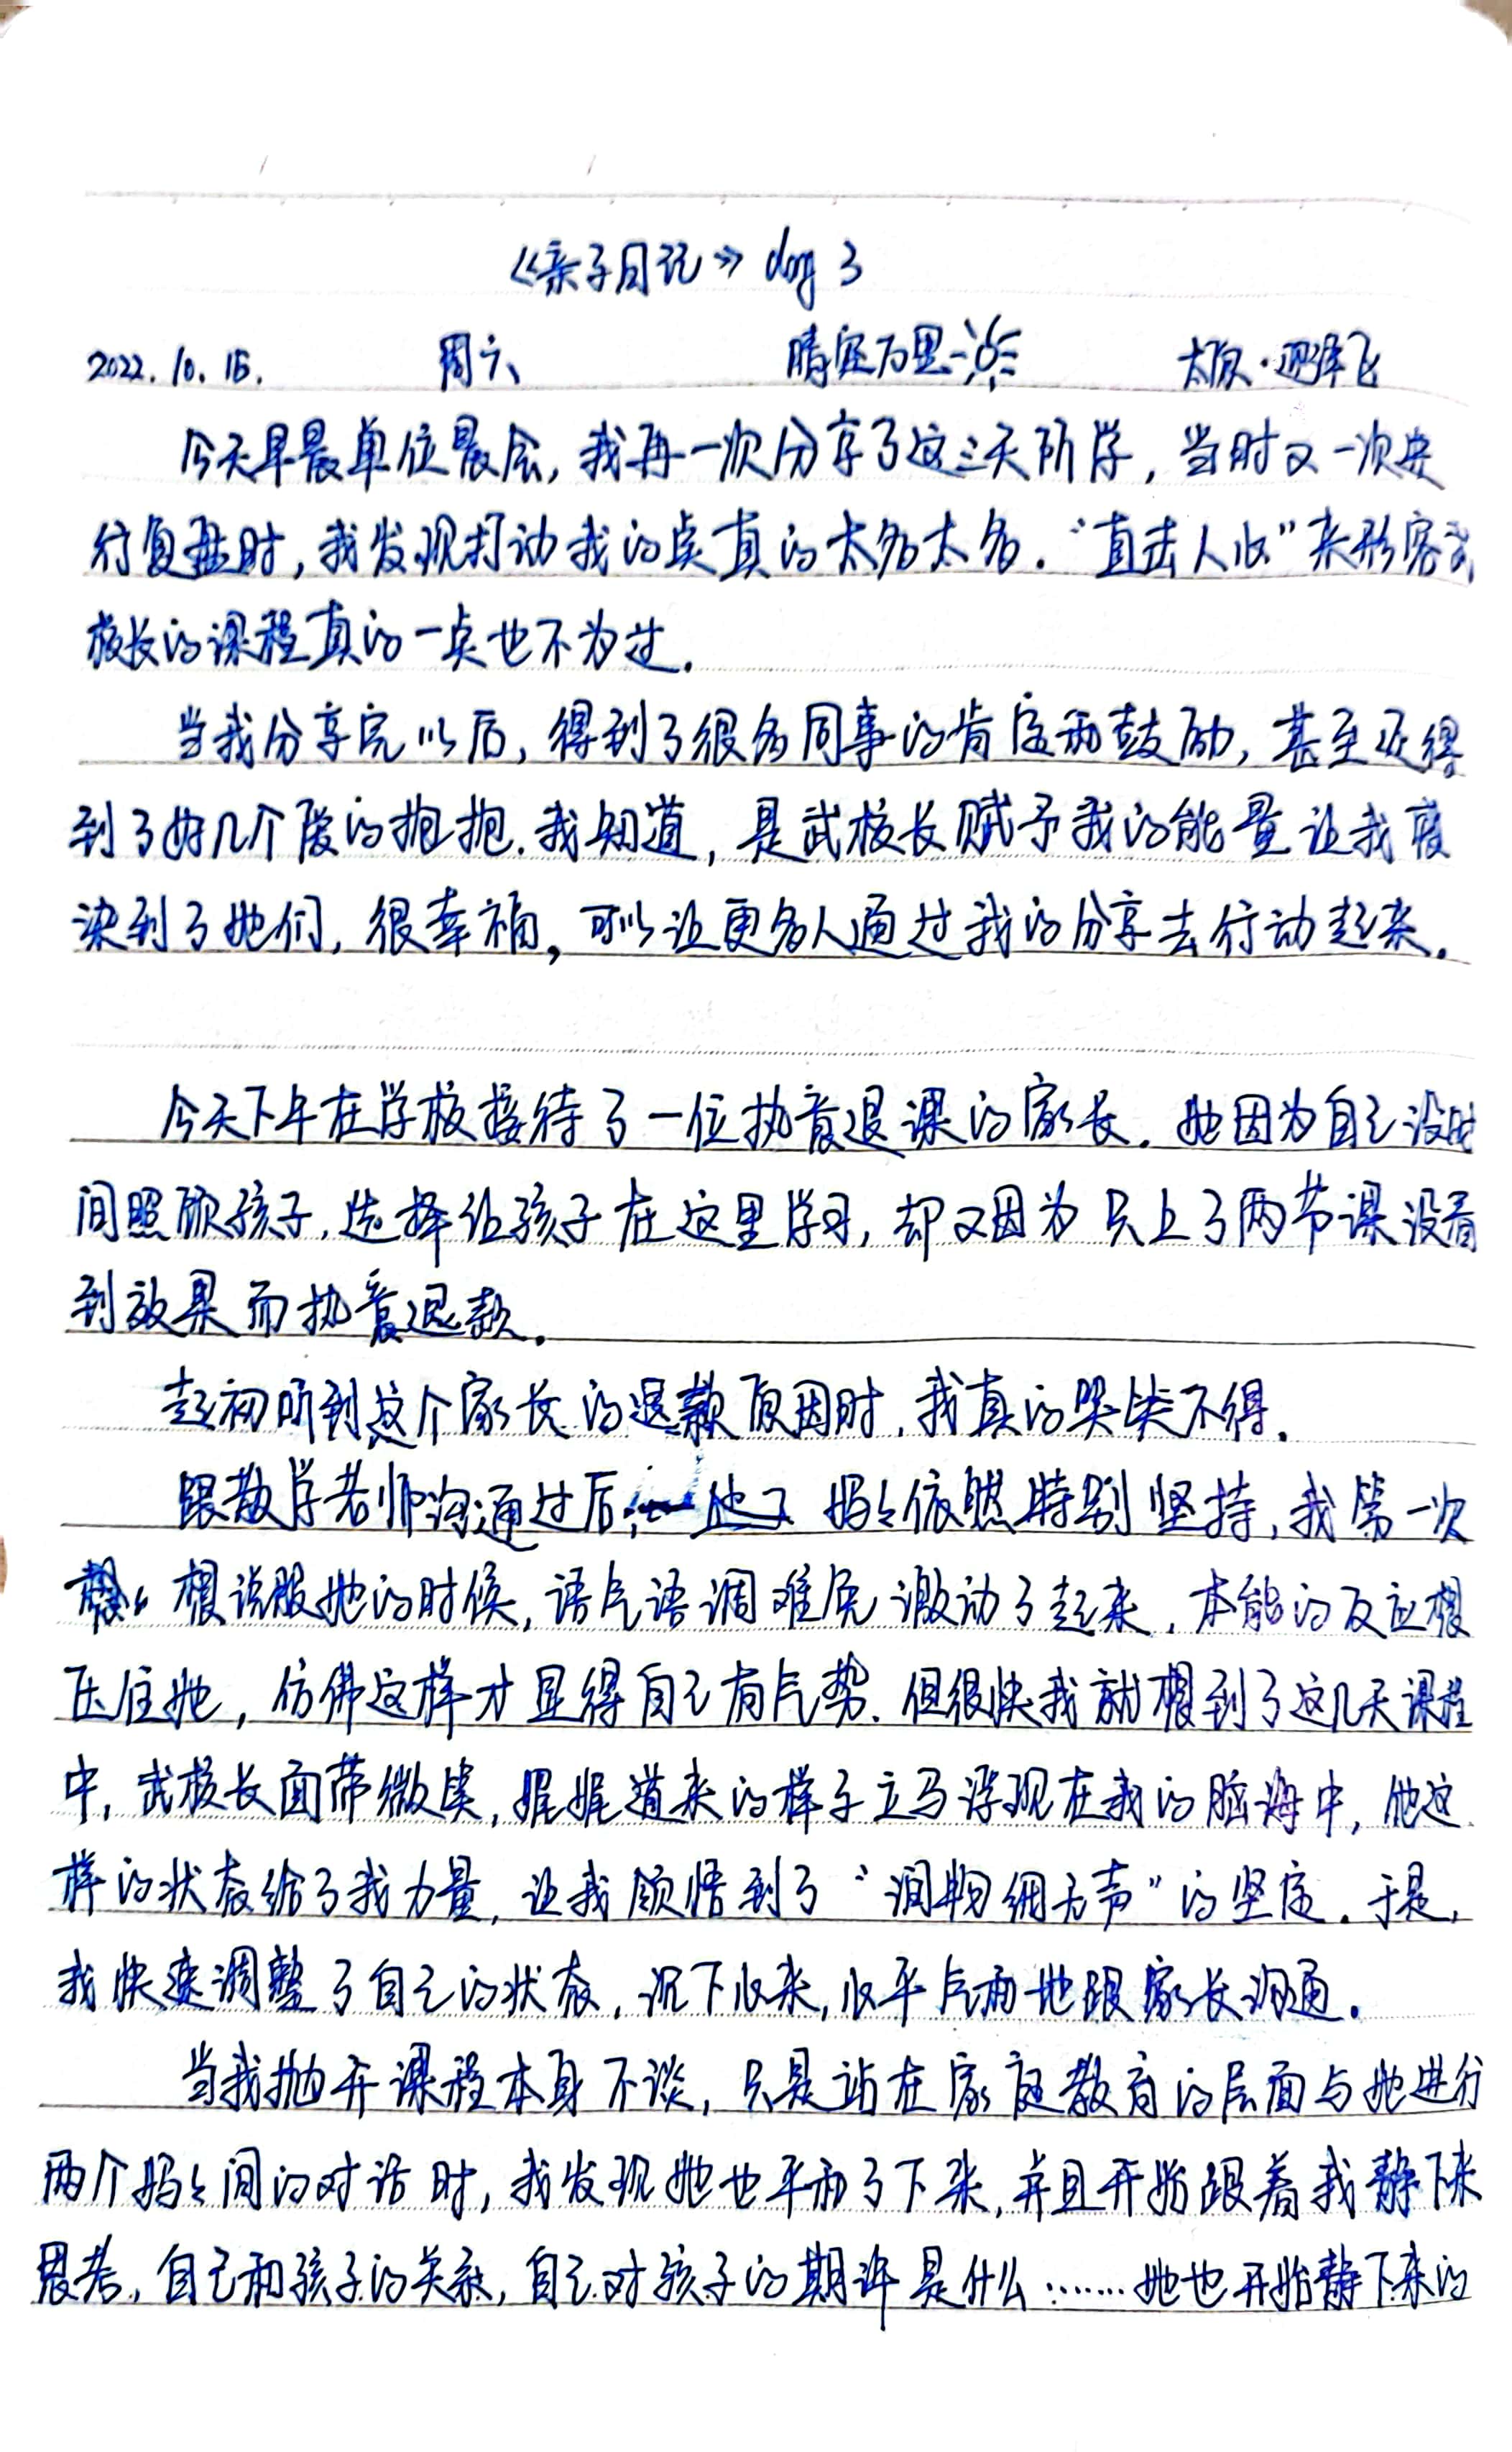 《亲子日记》day 3
2022.10.15. 周六 晴空万里 太原·
今天早晨单位晨会,我再一次分享了这三天所学,当时又一次进
行复盘时,我发现打动我的点真的太多太多."直击人心"来形容武
校长的课程真的一点也不为过.
当我分享完以后,得到了很多同事的肯定和鼓励,甚至还得
到了好几个爱的拥抱.我知道,是武校长赋予我的能量让我感
染到了她们,很幸福,可以让更多人通过我的分享去行动起来.
今天下午在学校接待了一位执意退课的家长.她因为自己没时
间照顾孩子,选择让孩子在这里学习,却又因为只上了两节课没看
到效果而执意退款.
起初听到这个家长的退款原因时,我真的哭笑不得.
跟教学老师沟通过后,妈々依然特别坚持,我第一次
想说服她的时候,语气语调难免激动了起来,本能的反应想
压住她,仿佛这样才显得自己有气势.但很快我就想到了这几天课程
中,武校长面带微笑,娓娓道来的样子立马浮现在我的脑海中,他这
样的状态给了我力量,让我领悟到了"润物细无声"的坚定.于是,
我快速调整了自己的状态,沉下心来,心平气和地跟家长沟通.
当我抛开课程本身不谈,只是站在家庭教育的层面与她进行
两个妈々间的对话时,我发现她也平和了下来,并且开始跟着我静下来
思考,自己和孩子的关系,自己对孩子的期许是什么……她也开始静下来的